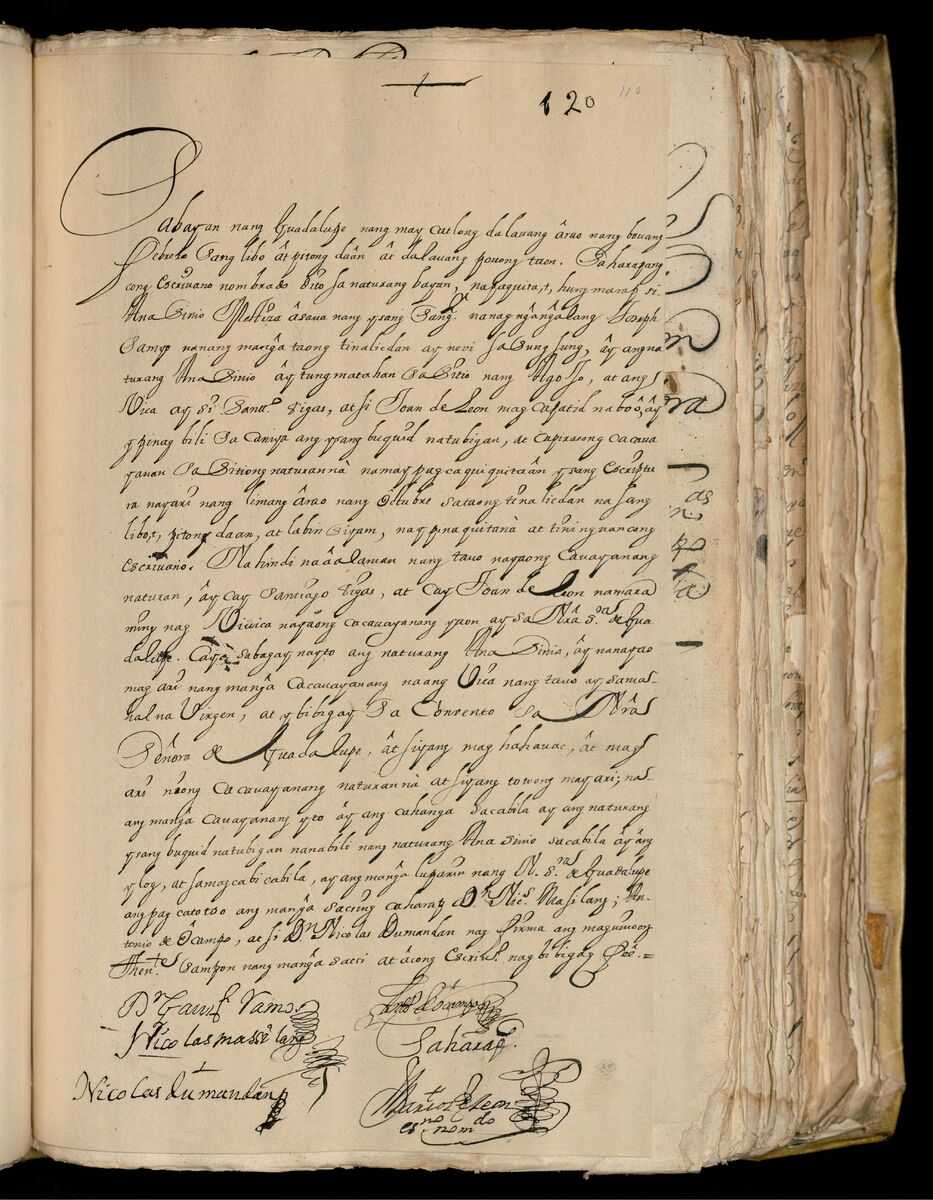 120
110
Sabayan nang Guadalupe nang may catlong dalauang árao nang bouang
Febrero sang libo át pitong daân át dalauang pouong taon. Sa harapang
cong Escriuano nombrado dito sa naturang bayan, napaquita, t, hungmarap si
Ana Sinio Mestiza ásaua nang ysang Sangl. nanagngângâlang Joseph
Samyo nanang mangâ taong tinalicdan ay novi sa Sungsung, ây ang na
turang Ana Sinio áy tungmatahan Sa Sitio nang Agoso, at ang
Vica ay Si Santo. Tigas, at si Joan de Leon mag capatid na boô, áy
ypinag bili Sa Caniya ang ysang buquid na tubigan, at capirasong cacaua
yanan Sa Sitiong naturan nà namay pag caquiquitaân ysang Escriptu
ra nayari nang limang árao nang Octubre sa taong tinalicdan na sang
libo,t, pitong daan, at labin siyam, nay pinaquitanà at tiningnan cong
Escriuano. Na hindi naáalaman nang tauo nayaong Cauayanang
naturan, áy cay Santiago Tigas, at cay Joan de Leon namara
ming nag Viuica nayaong cacauayanang yaon ay sa Nrâ Sra. de Gua
dalupe. Caya sabagay nayto ang naturang Ana Sinio, áy nanayao
mag ari nang mangâ Cacauayanang na ang Vica nang tauo ay sa ma
hal na Virgen, at ybibigay Sa Convento Sa Nrâ
Señora de Guadalupe, át siyang mag hahauac, át mag
ari niong Cacauayanang naturan nà at siyang totoong may ari; na
ang mangâ Cauayanang yto áy ang cahanga Sacabila ay ang naturang
ysang buquid natubigan nanabili nang naturang Ana Sinio sacabila áy ang
ylog, at samagcabicabila, ay ang mangâ luparin nang N. Sra. de Guadalupe
ang pag catotoo ang mangâ Sacsing caharap Dn. Nics. Masilang; An-
tonio de Ocampo, at si Dn. Nicolas Dumandan nag firma ang maguinoong
Thente. Sampon nang mangâ sacsi at ácong Escriuo. nag bibigay feê. =
Nicolas massilang
Saharap.
Nicolas dumandan
Marco de Leon
esno nomdo